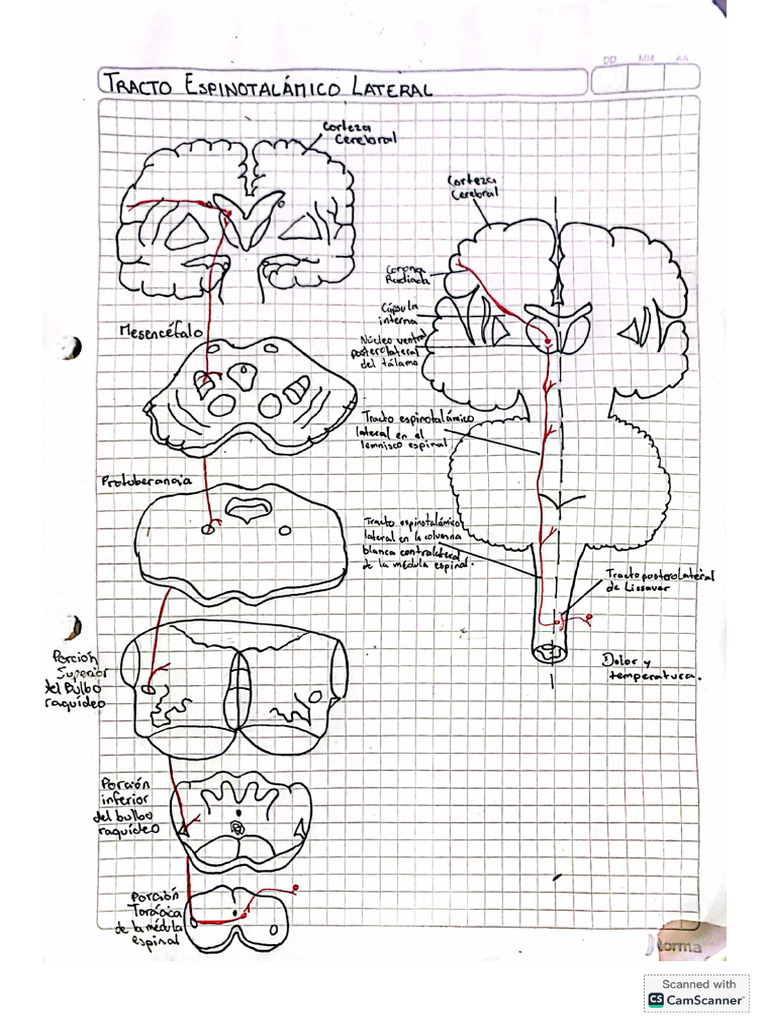 DD MM AA
TRACTO ESPINOTALÁMICO LATERAL
Corteza
Cerebral
Mesencéfalo
Protuberancia
Porción
Superior
del Bulbo
raquídeo
Porción
inferior
del bulbo
raquídeo
Porción
Torácica
de la médula
espinal
Corteza
Cerebral
Corona
Radiada
Cápsula
interna
Núcleo ventral
posterolateral
del tálamo
Tracto espinotalámico
lateral en el
lemnisco espinal
Tracto espinotalámico
lateral en la columna
blanca contralateral
de la médula espinal.
Tracto posterolateral
de Lissauer
Dolor y
temperatura.
norma
Scanned with
CS CamScanner